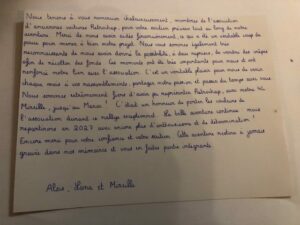 Nous tenons à vous remercier chaleureusement, membres de l'association
d'anciennes voitures Retroshop, pour votre soutien précieux tout au long de notre
aventure. Merci de nous avoir aidés financièrement, ce qui a été un véritable coup de
pouce pour mener à bien notre projet. Nous vous sommes également très
reconnaissants de nous avoir donné la possibilité, à deux reprises, de vendre des crêpes
afin de récolter des fonds. Ces moments ont été très importants pour nous et ont
renforcé notre lien avec l'association. C'est un véritable plaisir pour nous de venir
chaque mois à vos rassemblements, partager notre passion et passer du temps avec vous.
Nous sommes extrêmement fiers d'avoir pu représenter Retroshop, avec notre 4L
Mireille, jusqu'au Maroc ! C'était un honneur de porter les couleurs de
l'association durant ce rallye exceptionnel. La belle aventure continue : nous
repartirons en 2027 avec encore plus d'enthousiasme et de détermination !
Encore merci pour votre confiance et votre soutien. Cette aventure restera à jamais
gravée dans nos mémoires et vous en faites partie intégrante.
et Mireille